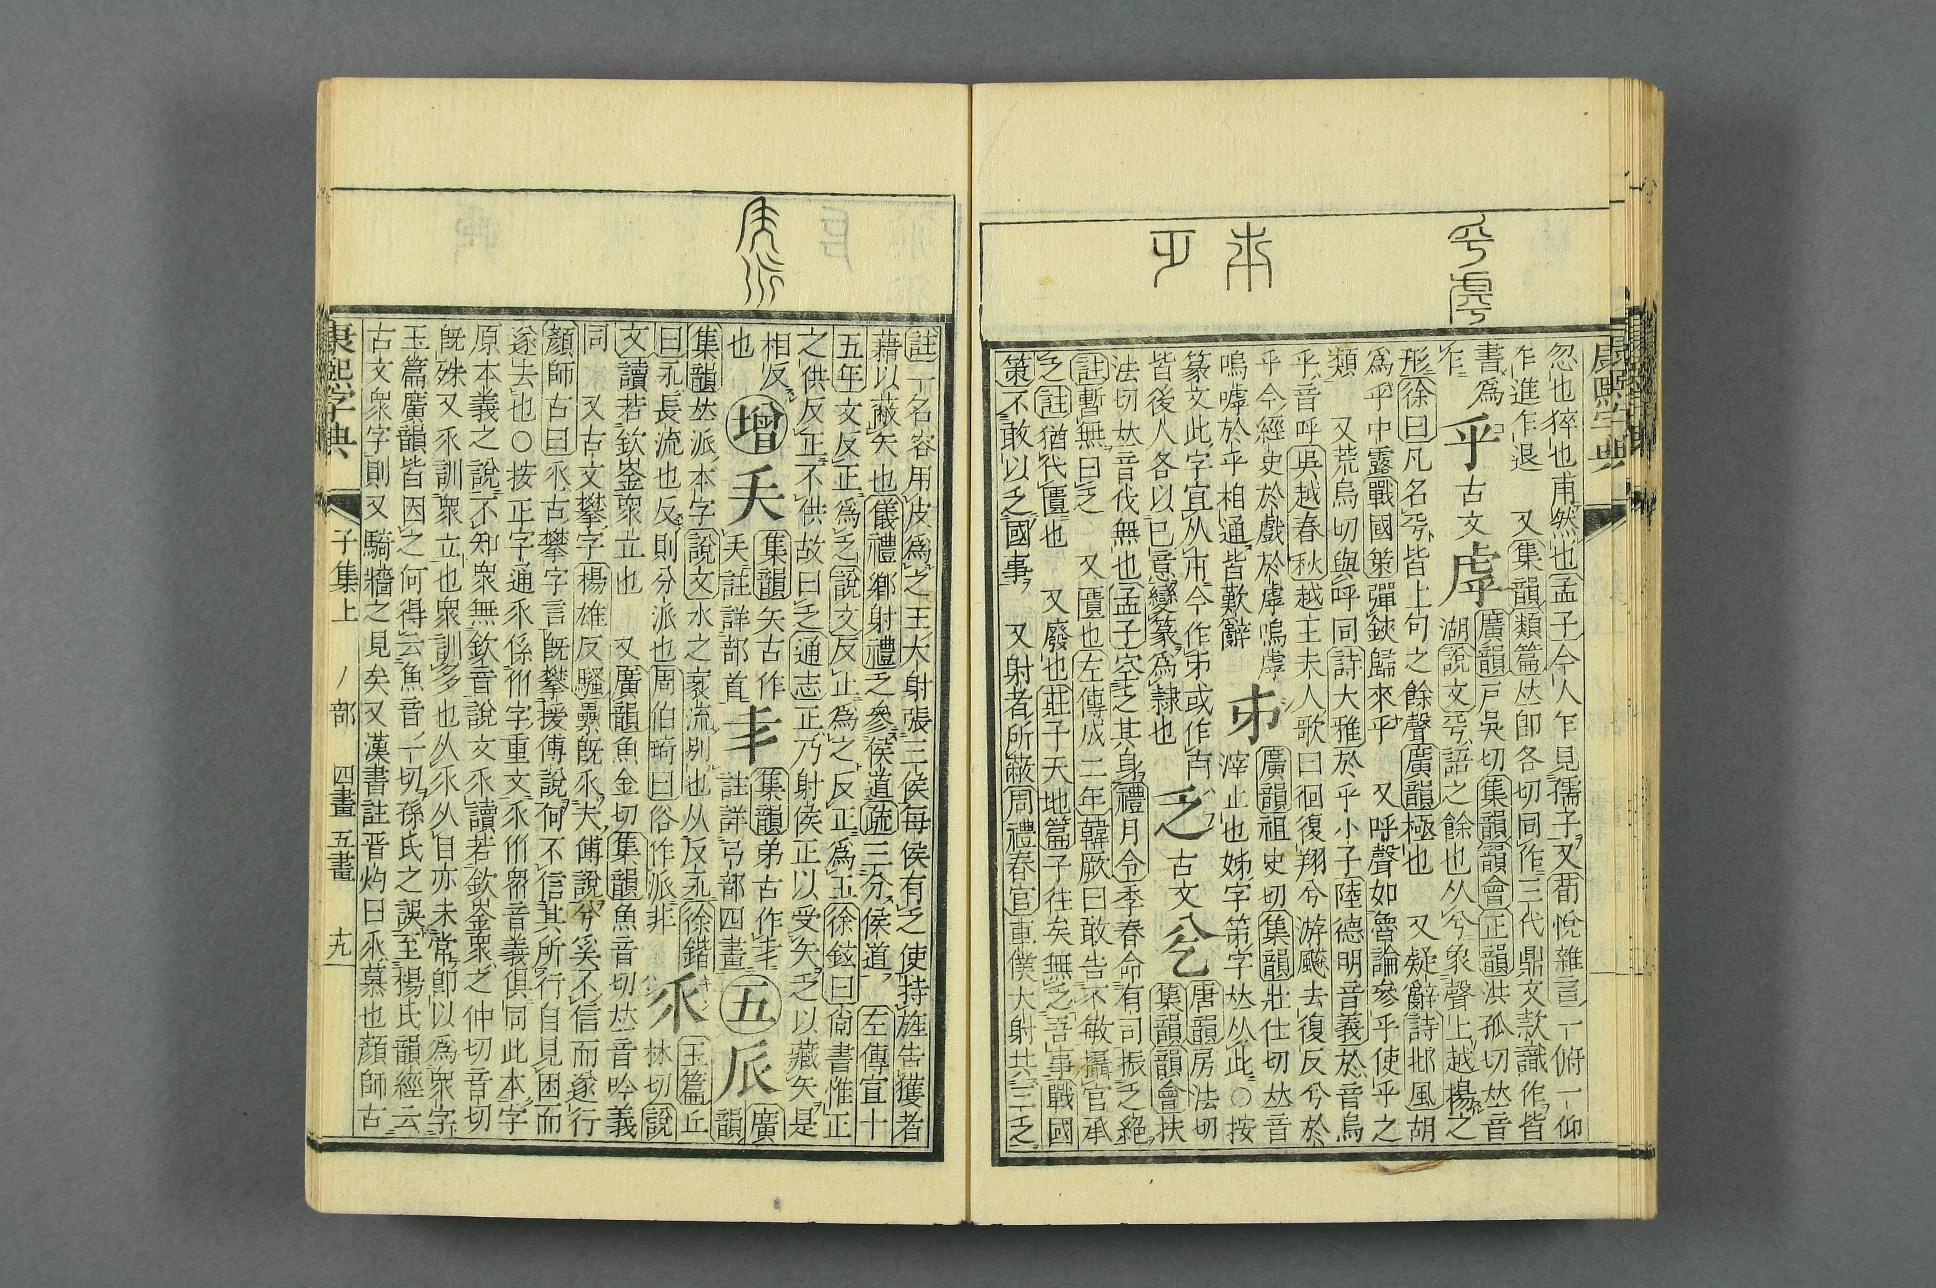 康熙字典
忽也猝也甫然也孟子今人乍見孺子又荀悅雜言一俯一仰
乍進乍退　又集韻類篇𠀤卽各切同作三代鼎文款識作皆
書爲乍
乎古文虖廣韻戸吳切集韻韻會正韻洪孤切𠀤音
湖說文乎語之餘也从兮象聲上越揚之
形徐曰凡名兮皆上句之餘聲廣韻極也　又疑辭詩邶風胡
爲乎中露戰國策彈鋏歸來乎　又呼聲如魯論參乎使乎之
類　又荒烏切與呼同詩大雅於乎小子陸德明音義於音烏
乎音呼吳越春秋越王夫人歌曰徊復翔兮游颺去復反兮於
乎今經史於戲於虖嗚虖
嗚嘑於乎相通皆歎辭
𠂔廣韻祖史切集韻壯仕切𠀤音
滓止也姊字第字𠀤从此○按
篆文此字宜从今作𠂔或作
皆後人各以已意變篆爲隷也
乏古文𠓟唐韻房法切
集韻韻會扶
法切𠀤音伐無也孟子空乏其身禮月令季春命有司振乏絕
註暫無曰乏　又匱也左傳成二年韓厥曰敢告不敏攝官承
乏註猶代匱也　又廢也莊子天地篇子往矣無乏吾事戰國
策不敢以乏國事　又射者所蔽周禮春官車僕大射共三乏
註乏名容用皮爲之王大射張三侯每侯有乏使持旌告獲者
藉以蔽矢也儀禮鄉射禮乏參侯道疏三分侯道　左傳宣十
五年文反正爲乏說文反正爲之反正爲玉徐鉉曰尙書惟正
之供反正不供故曰乏通志正乃射侯正以受矢乏以藏矢是
相反也
增
𠂒集韻矢古作
𠂒註詳部首
𠂖集韻弟古作𠂖
註詳弓部四畫
五
𠂢廣韻
集韻𠀤派本字說文水之衺流別也从反永徐鍇
曰永長流也反則分派也周伯琦曰俗作派非
乑玉篇丘林切說
文讀若欽崟衆立也　又廣韻魚金切集韻魚音切𠀤音吟義
同　又古文攀字楊雄反騷纍旣乑夫傅說兮奚不信而遂行
顏師古曰乑古攀字言旣攀援傅說何不信其所行自見困而
遂去也○按正字通乑係㐺字重文乑㐺眾音義俱同此本字
原本義之說不知衆無欽音說文乑讀若欽崟衆之仲切音切
旣殊又乑訓衆立也衆訓多也从乑从目亦未常卽以爲衆字
玉篇廣韻皆因之何得云魚音一切孫氏之誤至楊氏韻經云
古文衆字則又騎牆之見矣又漢書註晋灼曰乑慕也顏師古
康熙字典　子集上　丿部　四畫　五畫　十九